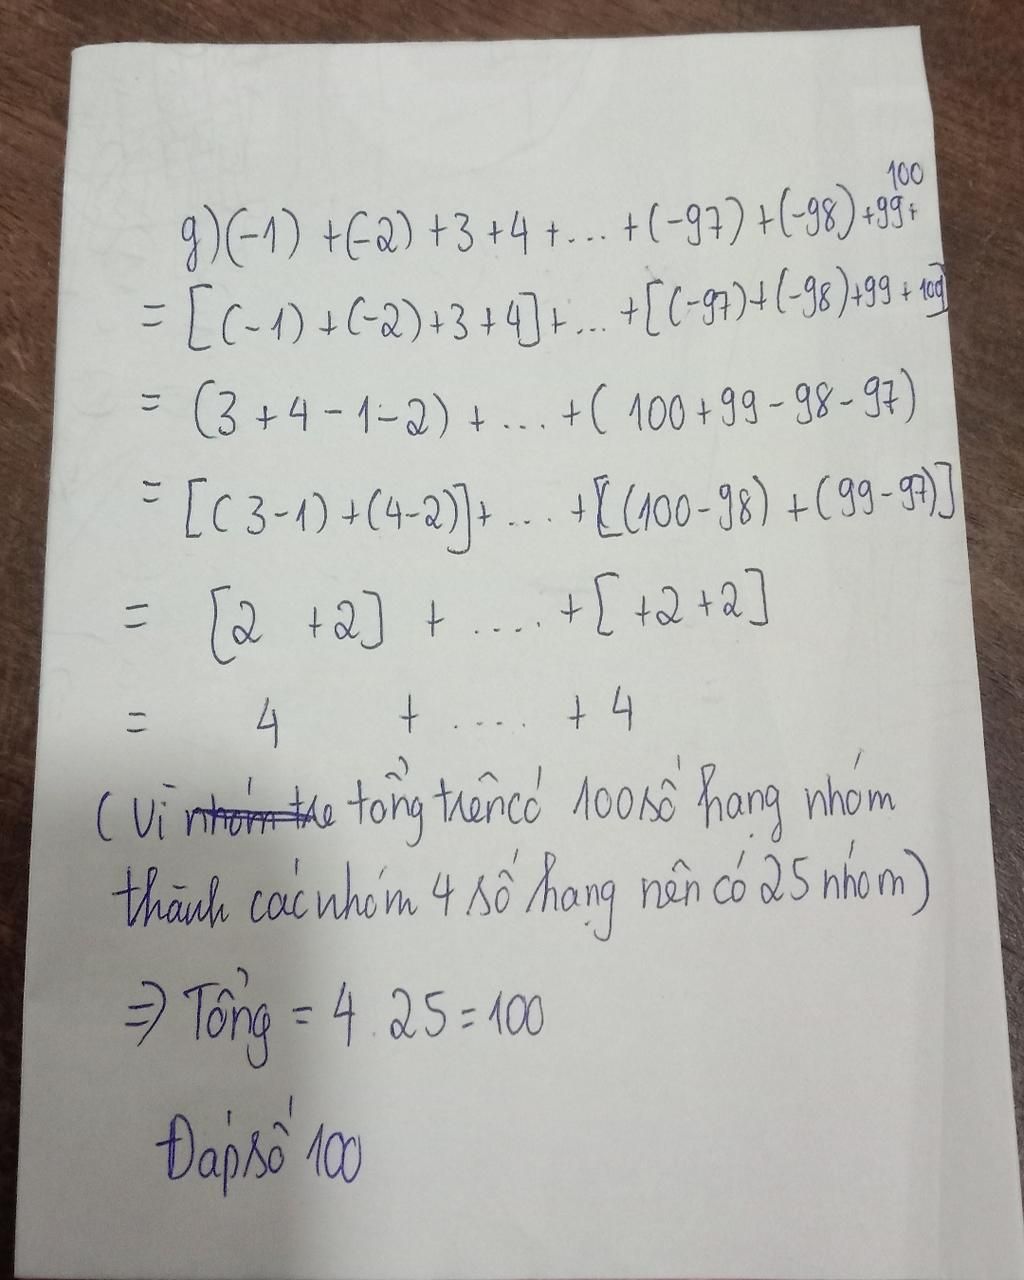 g) (-1) + (-2) + 3 + 4 + ... + (-97) + (-98) + 99 + 100
= [(-1) + (-2) + 3 + 4] + ... + [(-97) + (-98) + 99 + 100]
= (3 + 4 - 1 - 2) + ... + ( 100 + 99 - 98 - 97)
= [(3 - 1) + (4 - 2)] + .... + [(100 - 98) + (99 - 97)]
= [2 + 2] + .... + [ +2 + 2]
= 4 + .... + 4
(Vì nhóm tre tổng trên có 100 số hạng nhóm
thành các nhóm 4 số hạng nên có 25 nhóm)
⇒ Tổng = 4 . 25 = 100
Đáp số 100